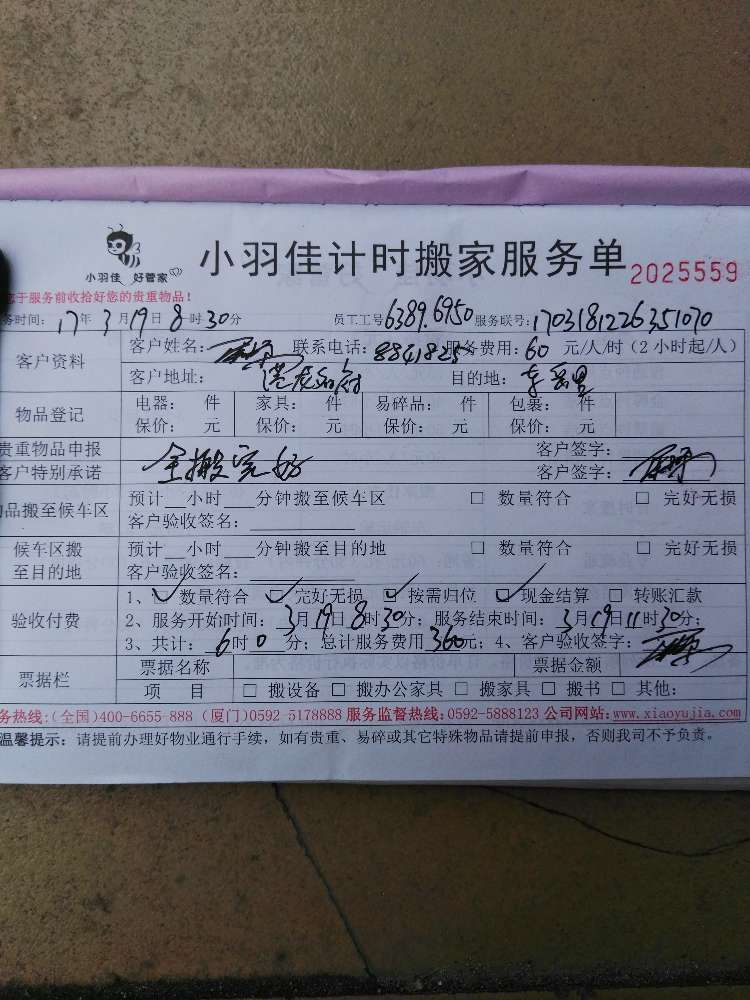 小羽佳 好管家
小羽佳计时搬家服务单 2025559
于服务前收拾好您的贵重物品!
务时间: 17年3月19日8时30分 员工工号6389.6950 服务联号:1703181226351070
客户资料
客户姓名: 联系电话: 服务费用: 60 元/人/时(2小时起/人)
客户地址: 目的地:
物品登记
电器: 件 家具: 件 易碎品: 件 包裹: 件
保价: 元 保价: 元 保价: 元 保价: 元
贵重物品申报 客户签字:
客户特别承诺 全搬完好 客户签字:
品搬至候车区
预计 小时 分钟搬至候车区 □ 数量符合 □ 完好无损
客户验收签名:
候车区搬至目的地
预计 小时 分钟搬至目的地 □ 数量符合 □ 完好无损
客户验收签名:
验收付费
1、☑ 数量符合 ☑ 完好无损 ☑ 按需归位 ☑ 现金结算 □ 转账汇款
2、服务开始时间: 3月19日8时30分; 服务结束时间: 3月19日11时30分;
3、共计: 6时0分; 总计服务费用360元; 4、客户验收签字:
票据栏
票据名称 票据金额
项 目 □ 搬设备 □ 搬办公家具 □ 搬家具 □ 搬书 □ 其他:
务热线:(全国)400-6655-888 (厦门)0592-5178888 服务监督热线:0592-5888123 公司网站:www.xiaoyujia.com
温馨提示: 请提前办理好物业通行手续,如有贵重、易碎或其它特殊物品请提前申报,否则我司不予负责。